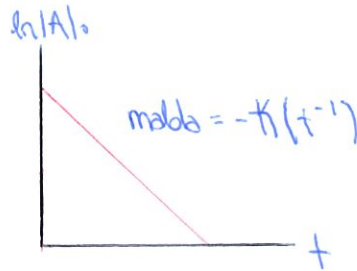 ln|A|₀
malda = -K(t⁻¹)
t